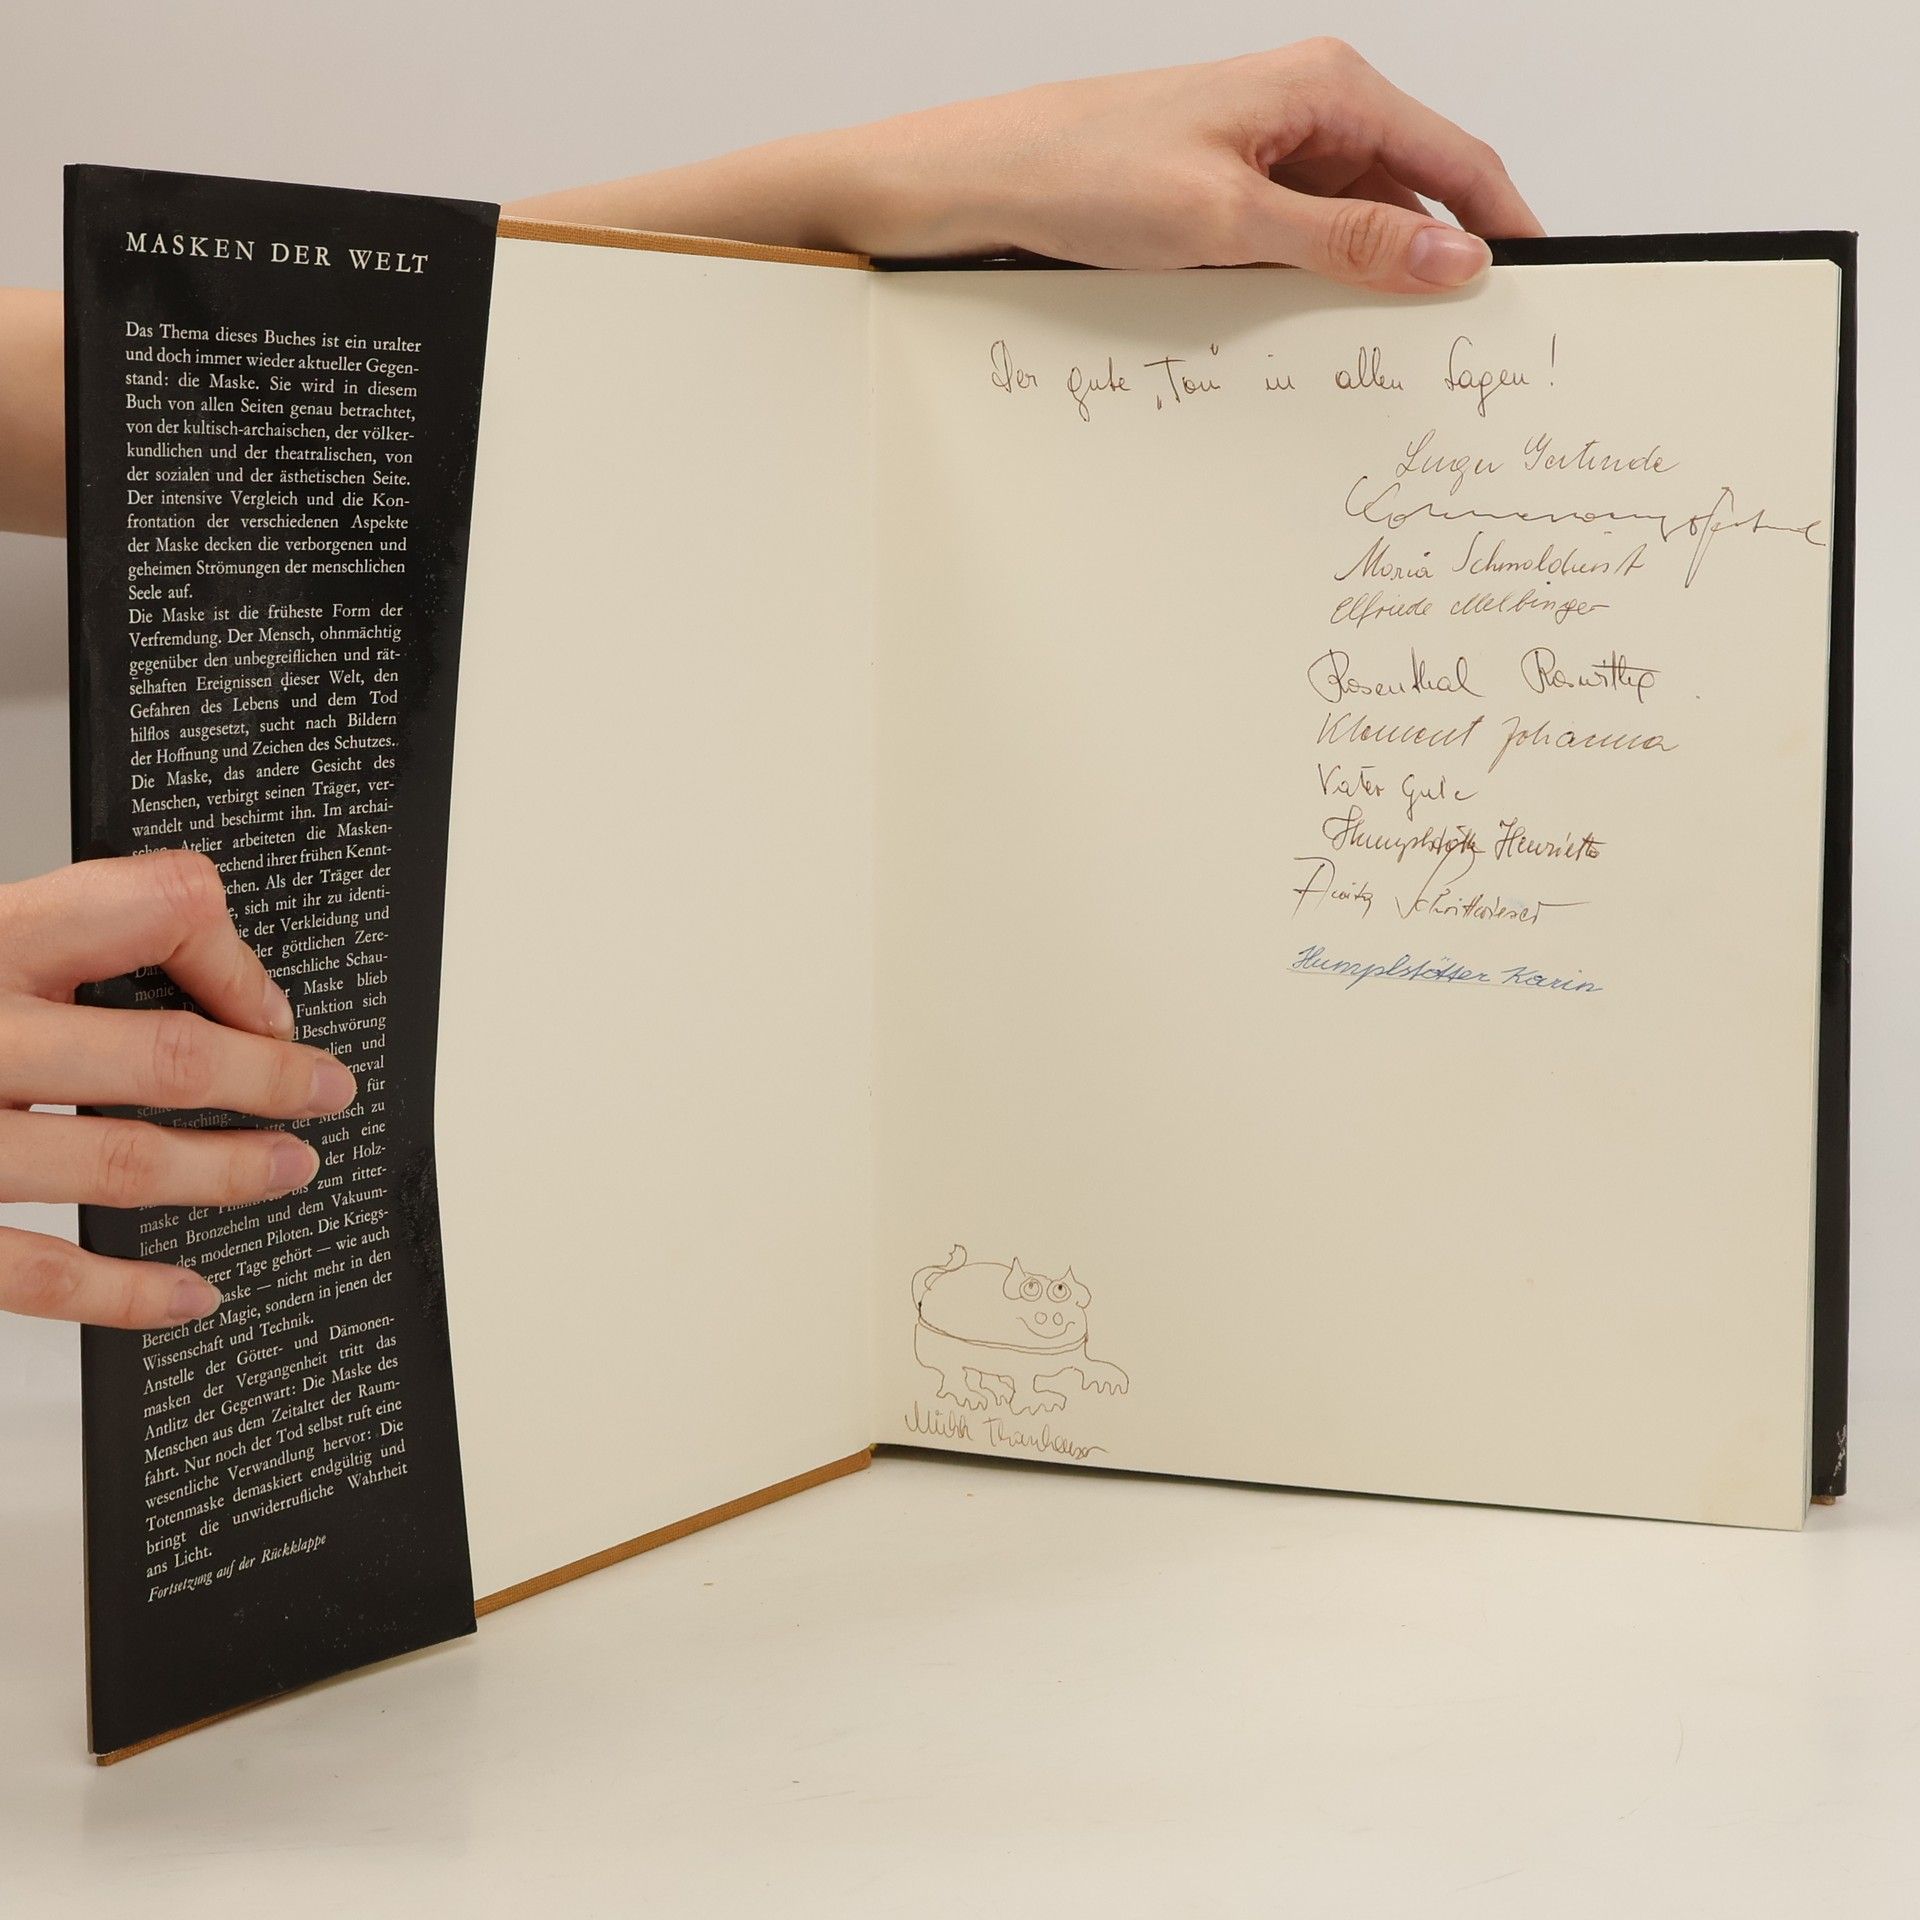 MASKEN DER WELT
Das Thema dieses Buches ist ein uralter
und doch immer wieder aktueller Gegen-
stand: die Maske. Sie wird in diesem
Buch von allen Seiten genau betrachtet,
von der kultisch-archaischen, der völker-
kundlichen und der theatralischen, von
der sozialen und der ästhetischen Seite.
Der intensive Vergleich und die Kon-
frontation der verschiedenen Aspekte
der Maske decken die verborgenen und
geheimen Strömungen der menschlichen
Seele auf.
Die Maske ist die früheste Form der
Verfremdung. Der Mensch, ohnmächtig
gegenüber den unbegreiflichen und rät-
selhaften Ereignissen dieser Welt, den
Gefahren des Lebens und dem Tod
hilflos ausgesetzt, sucht nach Bildern
der Hoffnung und Zeichen des Schutzes.
Die Maske, das andere Gesicht des
Menschen, verbirgt seinen Träger, ver-
wandelt und beschirmt ihn. Im archai-
Atelier arbeiteten die Masken-
ihrer frühen Kennt-
Als der Träger der
sich mit ihr zu identi-
der Verkleidung und
der göttlichen Zere-
menschliche Schau-
Maske blieb
Funktion sich
Beschwörung
und
für
der Mensch zu
auch eine
der Holz-
zum ritter-
maske der
lichen Bronzehelm und dem Vakuum-
des modernen Piloten. Die Kriegs-
Tage gehört — wie auch
— nicht mehr in den
Bereich der Magie, sondern in jenen der
Wissenschaft und Technik.
Anstelle der Götter- und Dämonen-
masken der Vergangenheit tritt das
Antlitz der Gegenwart: Die Maske des
Menschen aus dem Zeitalter der Raum-
fahrt. Nur noch der Tod selbst ruft eine
wesentliche Verwandlung hervor: Die
Totenmaske demaskiert endgültig und
bringt die unwiderrufliche Wahrheit
ans Licht.
Fortsetzung auf der Rückklappe
Der gute „Ton" in allen Lagen!
Gertrude
Maria Schmoldienst
Elfriede Melbinger
Rosenthal Roswitha
Klement Johanna
Vater Gute
Humplstötter Henriette
Humplstötter Karin